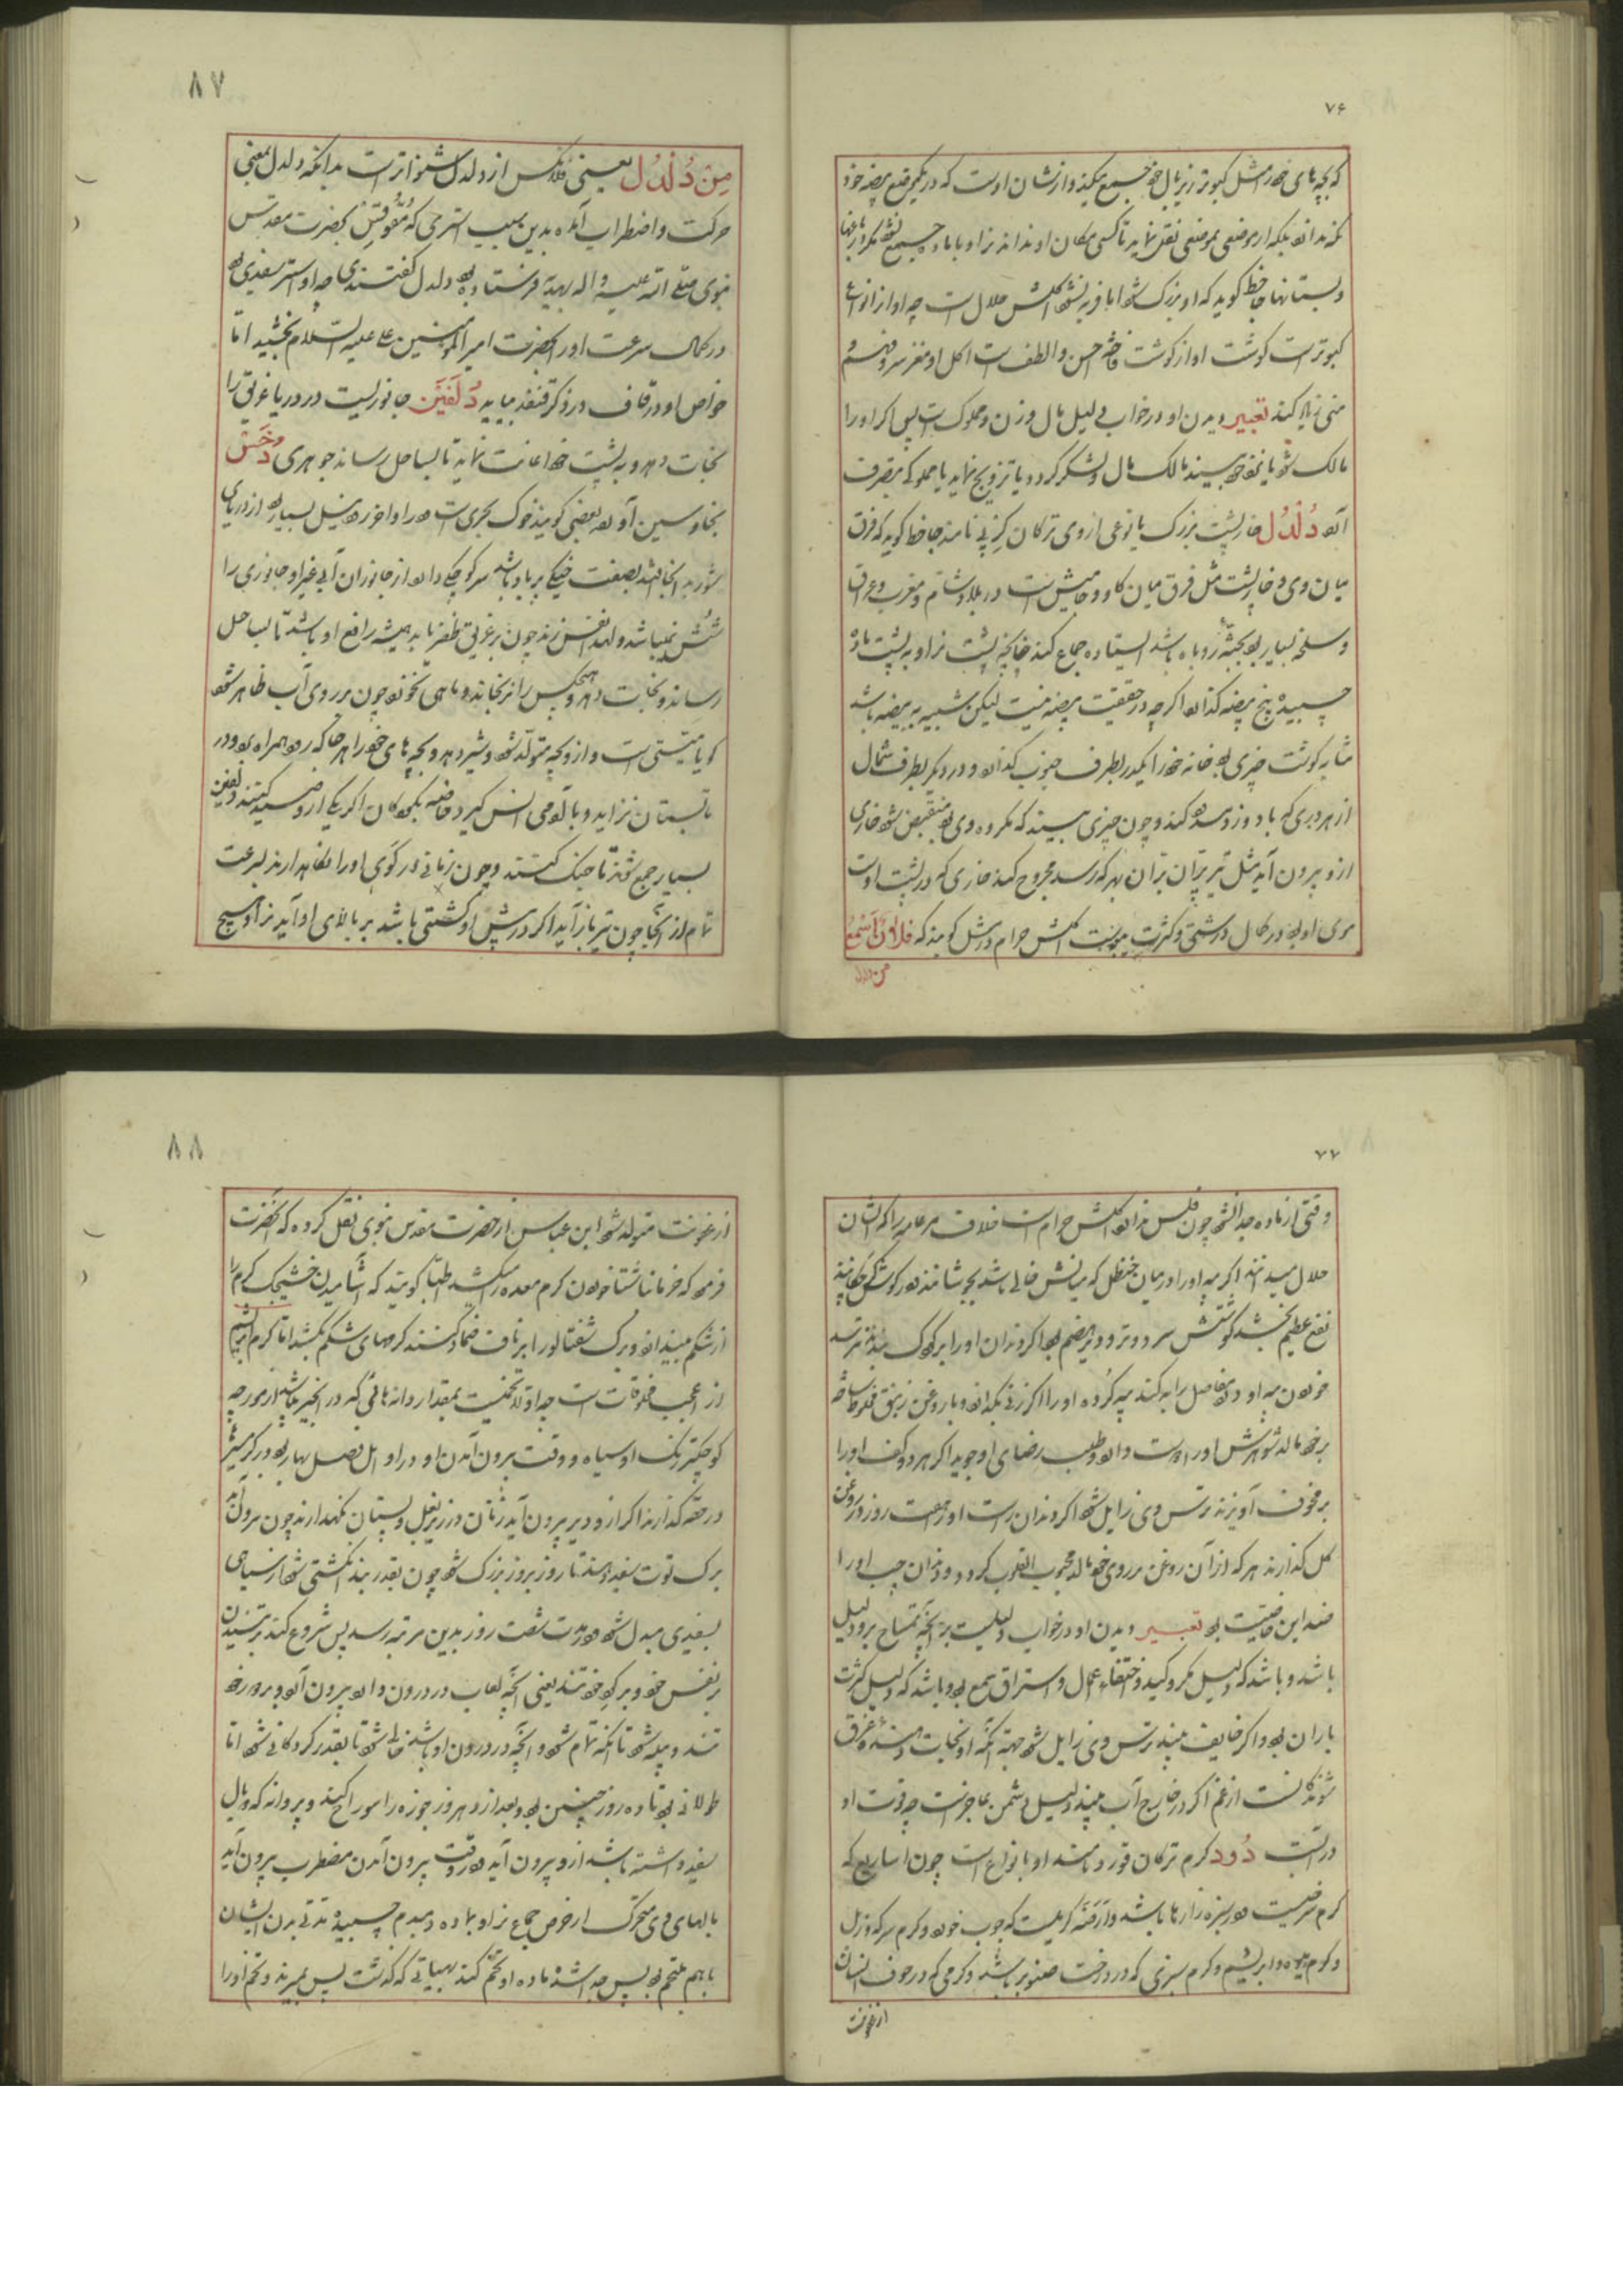 ۷۶
که بچه‌های خود را مثل کبوتر زیر بال خود جمع میکند و از نشان اوست که در یکموضع بیضه خود
نکند بلکه از موضعی بموضعی نقل نماید تا کسی مکان او نداند نر او با ماده جمع نشود مگر در باغها
و بستانها جاحظ گوید که او بزرگ شود اما فربه نشود اکلش حلال است چه او از انواع
کبوتر است گوشت او از گوشت فاخته احسن و الطف است اکل او مغز سر و فهم و
منی زیاد کند تعبیر دیدن او در خواب دلیل مال و زن و مملوک است پس اگر او را
مالک شود یا بخود ببیند مالک مال و لشکر گردد یا تزویج نماید یا مملوکه بتصرف
آرد دُلْدُل خارپشت بزرگ یا نوعی از وی ترکان کرپی نامند جاحظ گوید که فرق
میان وی و خارپشت مثل فرق میان گاو و جامیش است در بلاد شام و مغرب و عراق
و بسیار بود بجثه روباه باشد ایستاده جماع کند چنانچه پشت نر او به پشت ماده
چسبیده پنج بیضه گذارد اگر چه در حقیقت بیضه نیست لیکن شبیه به بیضه باشد
مشابه گوشت چیزی بود خانه خود را یکدر بطرف جنوب گذارد و در دیگر بطرف شمال
از هر دری که باد وزد سد کند و چون چیزی ببیند که مکروه وی بود منقبض شود خاری
از و بیرون آید مثل تیر پران بهر که رسد مجروح کند خاری که در پشت اوست
موی او بود در کمال درشتی و کثرت یبوست اکلش حرام در مثل گویند که فلانٌ اَسْمَعُ
من دلدل
۸۷
مِنْ دُلْدُل یعنی فلانکس از دلدل شنواتر است بدانکه دلدل بمعنی
حرکت و اضطراب آمده بدین سبب استری که مُقوقِس بحضرت مقدس
نبوی صلی الله علیه و اله بهدیه فرستاده بود دلدل گفتندی چه او استر سفیدی بود
در کمال سرعت او را آنحضرت امیر المؤمنین علی علیه السلام بخشید اما
خواص او در قاف در ذکر قنفذ بیاید دُلْفَین جانوریست در دریا غریق را
نجات دهد و به پشت خود اعانت نماید تا بساحل رساند جوهری دُخَس
بخا و سین آورده بعضی گویند خوک بحری است در اواخر رود نیل بسیار بود از دریای
شور به آنجا افتد بصفت خیکی پر باد باشد سر کوچکی دارد از جانوران آبی غیر او جانوری را
شُش نمیباشد ولهذا نفس زند چون بر غریق ظفر یابد همیشه رافع او باشد تا بساحل
رساند و نجات دهد و هیچکس را نرنجاند و ماهی نخورد چون بر روی آب ظاهر شود
گویا میتی است و از و بچه متولد شود و شیر دهد و بچه‌های خود را هر جا که رود همراه بود و در
تابستان نزاید و با آدمی انس گیرد خاصه بکودکان اگر یکی را صید کنند دلفین
بسیار جمع شوند تا جنگ کنند و چون زمانی در گوی او را نگاهدارند بسرعت
تمام از آنجا چون تیر باز آید اگر در پیش او کشتی باشد بر بالای او آید نر او هیچ
۷۷
وقتی از ماده جدا نشود چون فلس ندارد اکلش حرام است خلاف مر عامه را که ایشان
حلال میدانند اگر پیه او را در میان حنظل که میانش خالی باشد بجوشانند در گوش کر چکانند
نفع عظیم بخشد گوشتش سرد و تر و دیر هضم بود اگر دندان او را بر کودک بندند نترسد
خوردن پیه او درد مفاصل را به کند پیه گرده او را اگر زنی نگهدارد و با روغن زنبق مخلوط ساخته
بر خود مالد شوهرش او را دوست دارد و طلب رضای او جوید اگر هر دو کف او را
بر مخوف آویزند ترس وی زایل شود اگر دندان راست او را هفت روز در روغن
گل گذارند هر که از آن روغن بر روی خود مالد محبوب القلوب گردد و دندان چپ او را
ضد این خاصیت بود تعبیر دیدن او در خواب دلیلست بر آنچه تمساح برو دلیل
باشد و باشد که دلیل مکر و کید و اختفاء عمل و استراق سمع بود و باشد که دلیل کثرت
باران بود و اگر خایف بیند ترس وی زایل شود جهت آنکه او نجات دهنده غرق
شوندگانست از غم اگر در خارج آب بیند دلیل دشمن عاجز است چه قوت او
در آبست دُود کرم ترکان قورد نامند او بانواع است چون اساریع که
کرم سرخیست در سبزه‌زارها باشد و اَرَضَه کرمیست که چوب خورد و کرم سرکه و زبل
و کرم میوه و ابریشم و کرم سبزی که در درخت صنوبر باشد و کرمی که در جوف انسان
از عفونت
۸۸
از عفونت متولد شود ابن عباس از حضرت مقدس نبوی نقل کرده که آنحضرت
فرمود که خرما ناشتا خوردن کرم معده را میکشد اطبا گویند که آشامیدن خشیجک کرم را
از شکم میندازد و برگ شفتالو را بر ناف ضماد کنند کرمهای شکم بکشد اما کرم ابریشم
از اعجب مخلوقات است چه اولا تخمیست بمقدار دانه‌هائی که در انجیر باشد از مورچه
کوچکتر رنگ او سیاه و وقت بیرون آمدن او در اوایل فصل بهار بود در گرمسیر
در حقه گذارند اگر از و دیر بیرون آید زنان در زیر بغل و پستان نگهدارند چون بیرون آید
برگ توت سفید دهند تا روز بروز بزرگ شود چون بقدر بند انگشتی شود از سیاهی
بسفیدی مبدل شود در مدت شصت روز بدین مرتبه رسد پس شروع کند بر تنیدن
بر نفس خود و بر گرد خود تند یعنی آنچه لعاب در درون دارد بیرون آرد و بر دور خود
تند و پیله شود تا آنکه تمام شود و آنچه در درون او باشد خالی شود تا بقدر گردکانی شود اما
طولانی بود تا ده روز چنین بود و بعد از ده روز جوزه را سوراخ کند و پروانه که دو بال
سفید داشته باشد از و بیرون آید در وقت بیرون آمدن مضطرب بیرون آید
بالهای وی متحرک از حرص جماع نر او بماده دمبدم چسبیده مدتی بدن ایشان
با هم ملتحم بود پس جدا شوند ماده او تخم کند بهیأتی که گذشت پس بمیرند و تخم او را